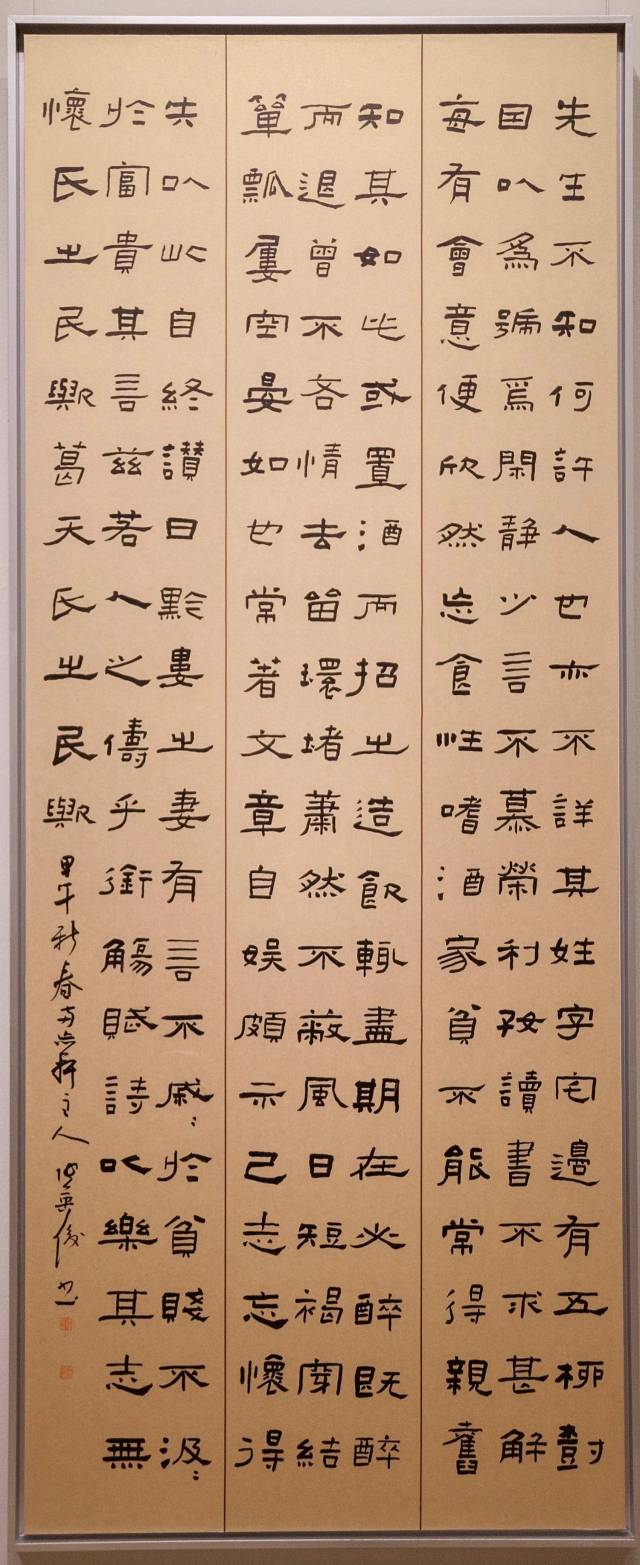 先生不知何許人也亦不詳其姓字宅邊有五柳樹
因以爲號焉閑靜少言不慕榮利好讀書不求甚解
每有會意便欣然忘食性嗜酒家貧不能常得親舊
知其如此或置酒而招之造飲輒盡期在必醉既醉
而退曾不吝情去留環堵蕭然不蔽風日短褐穿結
簞瓢屢空晏如也常著文章自娛頗示己志忘懷得
失以此自終讚曰黔婁之妻有言不戚〻於貧賤不汲〻
於富貴其言茲若人之儔乎銜觴賦詩以樂其志無
懷氏之民歟葛天氏之民歟 甲午新春 軒主人 書